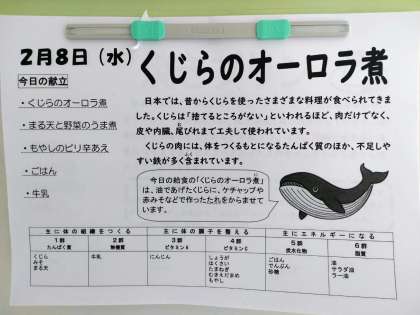 2月8日（水）
くじらのオーロラ煮
今日の献立
・くじらのオーロラ煮
・まる天と野菜のうま煮
・もやしのピリ辛あえ
・ごはん
・牛乳
日本では、昔からくじらを使ったさまざまな料理が食べられてきま
した。くじらは「捨てるところがない」といわれるほど、肉だけでなく、
皮や内臓、尾びれまで工夫して使われています。
くじらの肉には、体をつくるもとになるたんぱく質のほか、不足しや
すい鉄が多く含まれています。
今日の給食の「くじらのオーロラ煮」
は、油であげたくじらに、ケチャップや
赤みそなどで作ったたれをからませて
います。
主に体の組織をつくる
主に体の調子を整える
主にエネルギーになる
1群
たんぱく質
2群
無機質
3群
ビタミンA
4群
ビタミンC
5群
炭水化物
6群
脂質
くじら
みそ
まる天
牛乳
にんじん
しょうが
はくさい
たまねぎ
むきえだまめ
もやし
ごはん
でんぷん
砂糖
油
サラダ油
ラー油